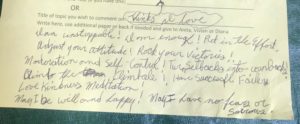 OR
Title of topic you wish to comment on: Kicks at Love
Write here, use additional paper or back if needed and give to Anita, Vivian or Diana
I am unstoppable! I am enough! Put in the Effort,
Adjust your attitude! Rock your Victories!
Moderation and Self Control! Turn Setbacks into comebacks
Climb the Ladder! Have Success Failure
Love Kindness Meditation!
May I be well and happy! May I have no fears or
Sorrows.